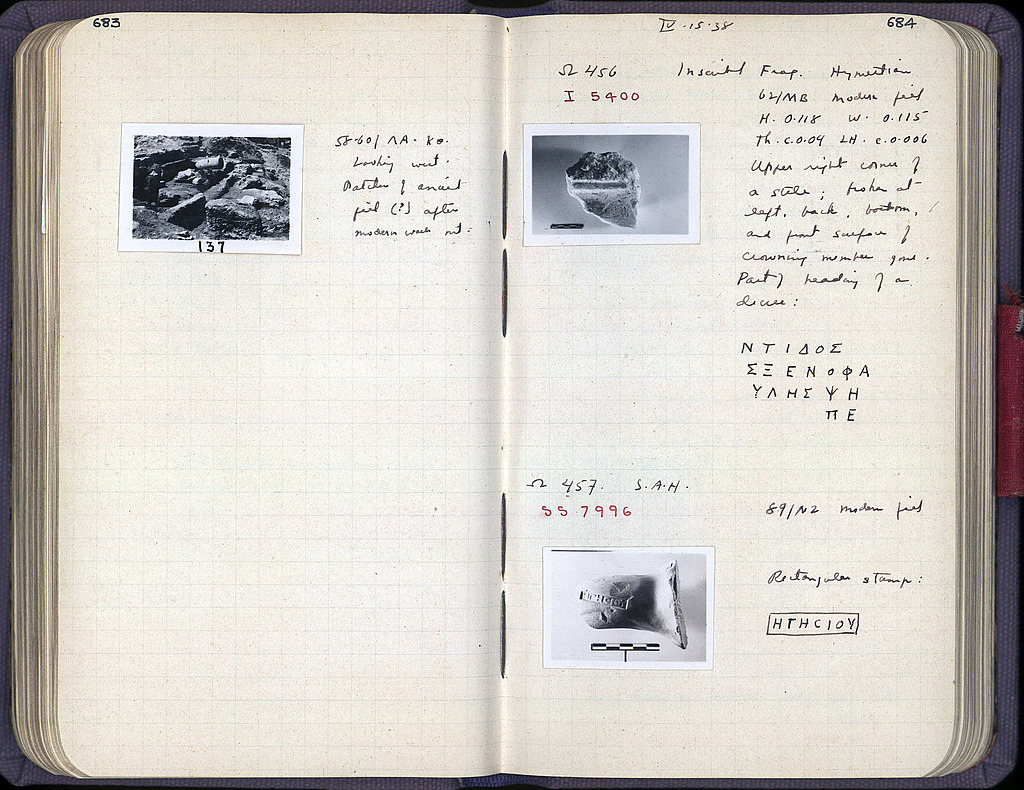 683
58-60/ΛΑ-ΚΘ.
Looking west.
Patches of ancient
fill (?) after
modern walls out.
137
IV-15-38
684
Ω 456 Inscribed Frag. Hymettian
I 5400
62/ΜΒ modern fill
H. 0.118 W. 0.115
Th. c. 0.09 LH. c. 0.006
Upper right corner of
a stele; broken at
left, back, bottom,
and front surface of
crowning member gone.
Part of heading of a
decree:
ΝΤΙΔΟΣ
ΣΞΕΝΟΦΑ
ΥΛΗΣΨΗ
ΠΕ
Ω 457. S.A.H.
SS 7996
89/ΝΖ modern fill
Rectangular stamp:
ΗΓΗCΙΟΥ